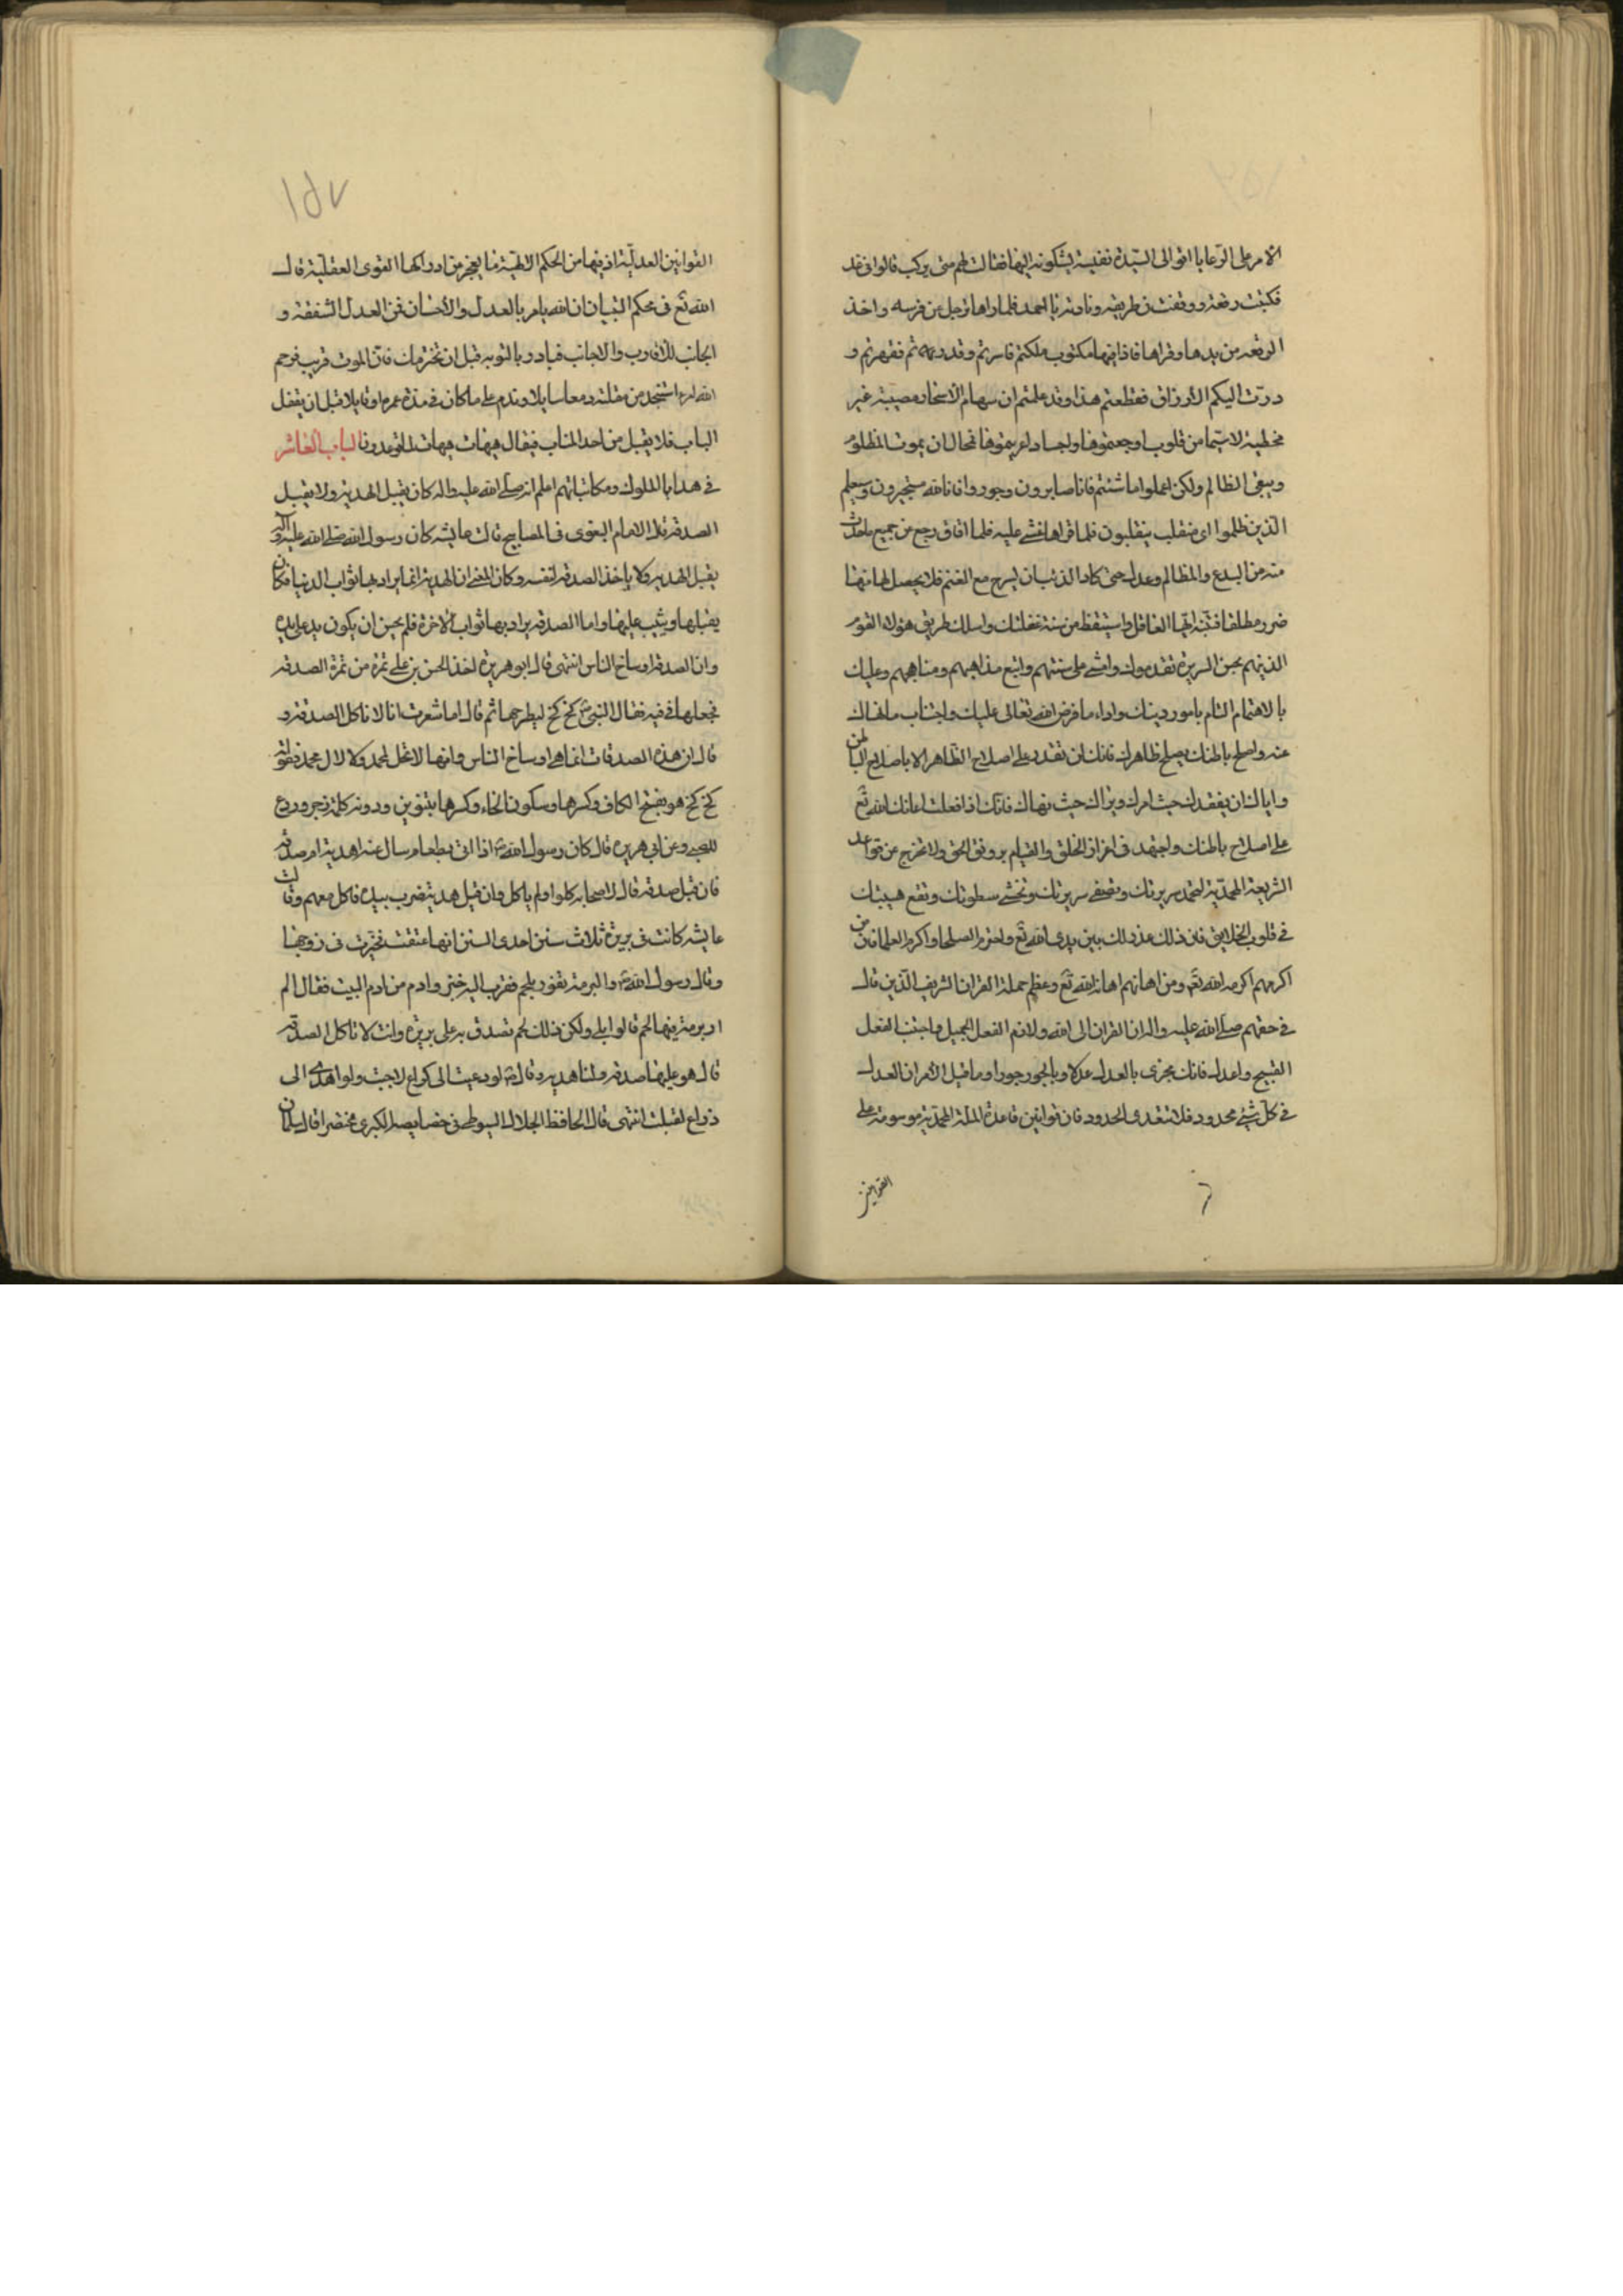 الامر على الرعايا اتوا الى السيدة نفيسة يشكونه اليها فقالت لهم متى يركب قالوا فى غد
فكتبت رقعة ووقفت فى طريقه ونادته يا احمد فلما راها ترجل عن فرسه واخذ
الرقعه من يدها وقراها فاذا فيها مكتوب ملكتم فاسرتم وقدرتم فقهرتم و
درت اليكم الارزاق فقطعتم هذا وقد علمتم ان سهام الاسحار مصيبة غير
مخطيه لا سيما من قلوب اوجعتموها واجساد اعريتموها فمحال ان يموت المظلوم
ويبقى الظالم ولكن اعملوا ما شئتم فانا صابرون وجوروا فانا بالله مستجيرون وسيعلم
الذين ظلموا اى منقلب ينقلبون فلما قراها غشى عليه فلما افاق رجع عن جميع ما حدث
منه من البدع والمظالم وعدل حتى كاد الذئب ان يسرح مع الغنم فلا يحصل لها منها
ضرر مطلقا فتنبه ايها الغافل واستيقظ من سنة غفلتك واسلك طريق هؤلاء القوم
الذينهم بحسن السريرة تقدموك وامشى على سنتهم واتبع مذاهبهم ومناهجهم وعليك
بالاهتمام التام بامور دينك واداء ما فرض الله تعالى عليك واجتناب ما نهاك
عنه واصلح باطنك يصلح ظاهرك فانك لن تقدر على اصلاح الظاهر الا باصلاح الباطن
واياك ان يفقدك حيث امرك ويراك حيث نهاك فانك اذا فعلت اعانك الله تع
على اصلاح باطنك واجتهد فى اعزاز الخلق والقيام بروفق الحق ولا تخرج عن قواعد
الشريعة المحمدية لتحمد سريرتك وتصفى سريرتك وتخشى سطوتك وتقع هيبتك
فى قلوب الخلايق فان ذلك عذر لك بين يدى الله تع واحترم الصلحا واكرم العلما فان من
اكرمهم اكرمه الله تع ومن اهانهم اهانه الله تع وعظم حملة القران الشريف الذين قال
فى حقهم صلى الله عليه واله ان القران الى الله ولازم الفعل الجميل واجتنب الفعل
القبيح واعدل فانك تجزى بالعدل عدلا وبالجور جورا وما قيل الامر ان العدل
فى كل شيئ محدود فلا تتعدى الحدود فان قوانين قاعدة الملة المحمدية موسومة على
القوانين
١٥٧
القوانين العدلية اذ فيها من الحكم الالهية ما يعجز من ادراكها القوى العقلية قال
الله تع فى محكم التبيان ان الله يامر بالعدل والاحسان فمن العدل الشفقة و
الجانب للاقارب والاجانب فبادر بالتوبه قبل ان تخترمك فان الموت قريب فرحم
الله امرء استنجد من مقلته دمعا سايلا وندم على ما كان فى مدة عمره قايلا قبل ان يقفل
الباب فلا يقبل من احد المتاب فيقال هيهات هيهات لما توعدون الباب العاشر
فى هدايا الملوك ومكاتباتهم اعلم انه صلى الله عليه واله كان يقبل الهدية ولا يقبل
الصدقه نقل الامام البغوى فى المصابيح قالت عايشه كان رسول الله صلى الله عليه واله
يقبل الهديه ولا ياخذ الصدقة لنفسه وكان المعنى ان الهدية انما يراد بها ثواب الدنيا فكان
يقبلها ويثيب عليها واما الصدقه يراد بها ثواب الاخرة فلم يحسن ان يكون يد على يده
وان الصدقه اوساخ الناس انتهى قال ابو هريرة اخذ الحسن بن على تمرة من تمرة الصدقه
فجعلها فى فيه فقال النبى ص كخ كخ ليطرحها ثم قال اما شعرت انا لا ناكل الصدقة و
قال ان هذه الصدقات انما هى اوساخ الناس وانها لا تحل لمحمد ولا لال محمد قوله
كخ كخ هو بفتح الكاف وكسرها وسكون الخاء وكسرها بتنوين ودونه كلمة زجر وردع
للصبى وعن ابى هريره قال كان رسول الله ص اذا اتى بطعام سال عنه اهدية ام صدقه
فان قيل صدقه قال لاصحابه كلوا ولم ياكل وان قيل هدية ضرب بيده فاكل معهم وقالت
عايشه كانت فى بريرة ثلاث سنن احدى السنن انها عتقت فخيرت فى زوجها
وقال رسول الله ص والبرمة تفور بلحم فقرب اليه خبز وادم من ادم البيت فقال الم
ار برمة فيها لحم قالوا بلى ولكن ذلك لحم تصدق به على بريرة وانت لا تاكل الصدقه
قال هو عليها صدقه ولنا هديه وقال ص لو دعيت الى كراع لاجبت ولو اهدى الى
ذراع لقبلت انتهى قال الحافظ الجلال السيوطى فى خصايصه الكبرى مختصرا قال